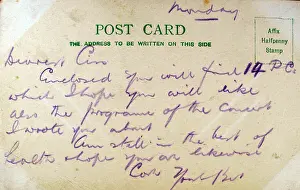 Monday
POST CARD
THE ADDRESS TO BE WRITTEN ON THIS SIDE
Affix
Halfpenny
Stamp
Dearest Ciss
Enclosed you will find 14 P.C.
which I hope you will like
also the programme of the Concert
I wrote you about
Am still in the best of
health & hope you are likewise
Your Bert